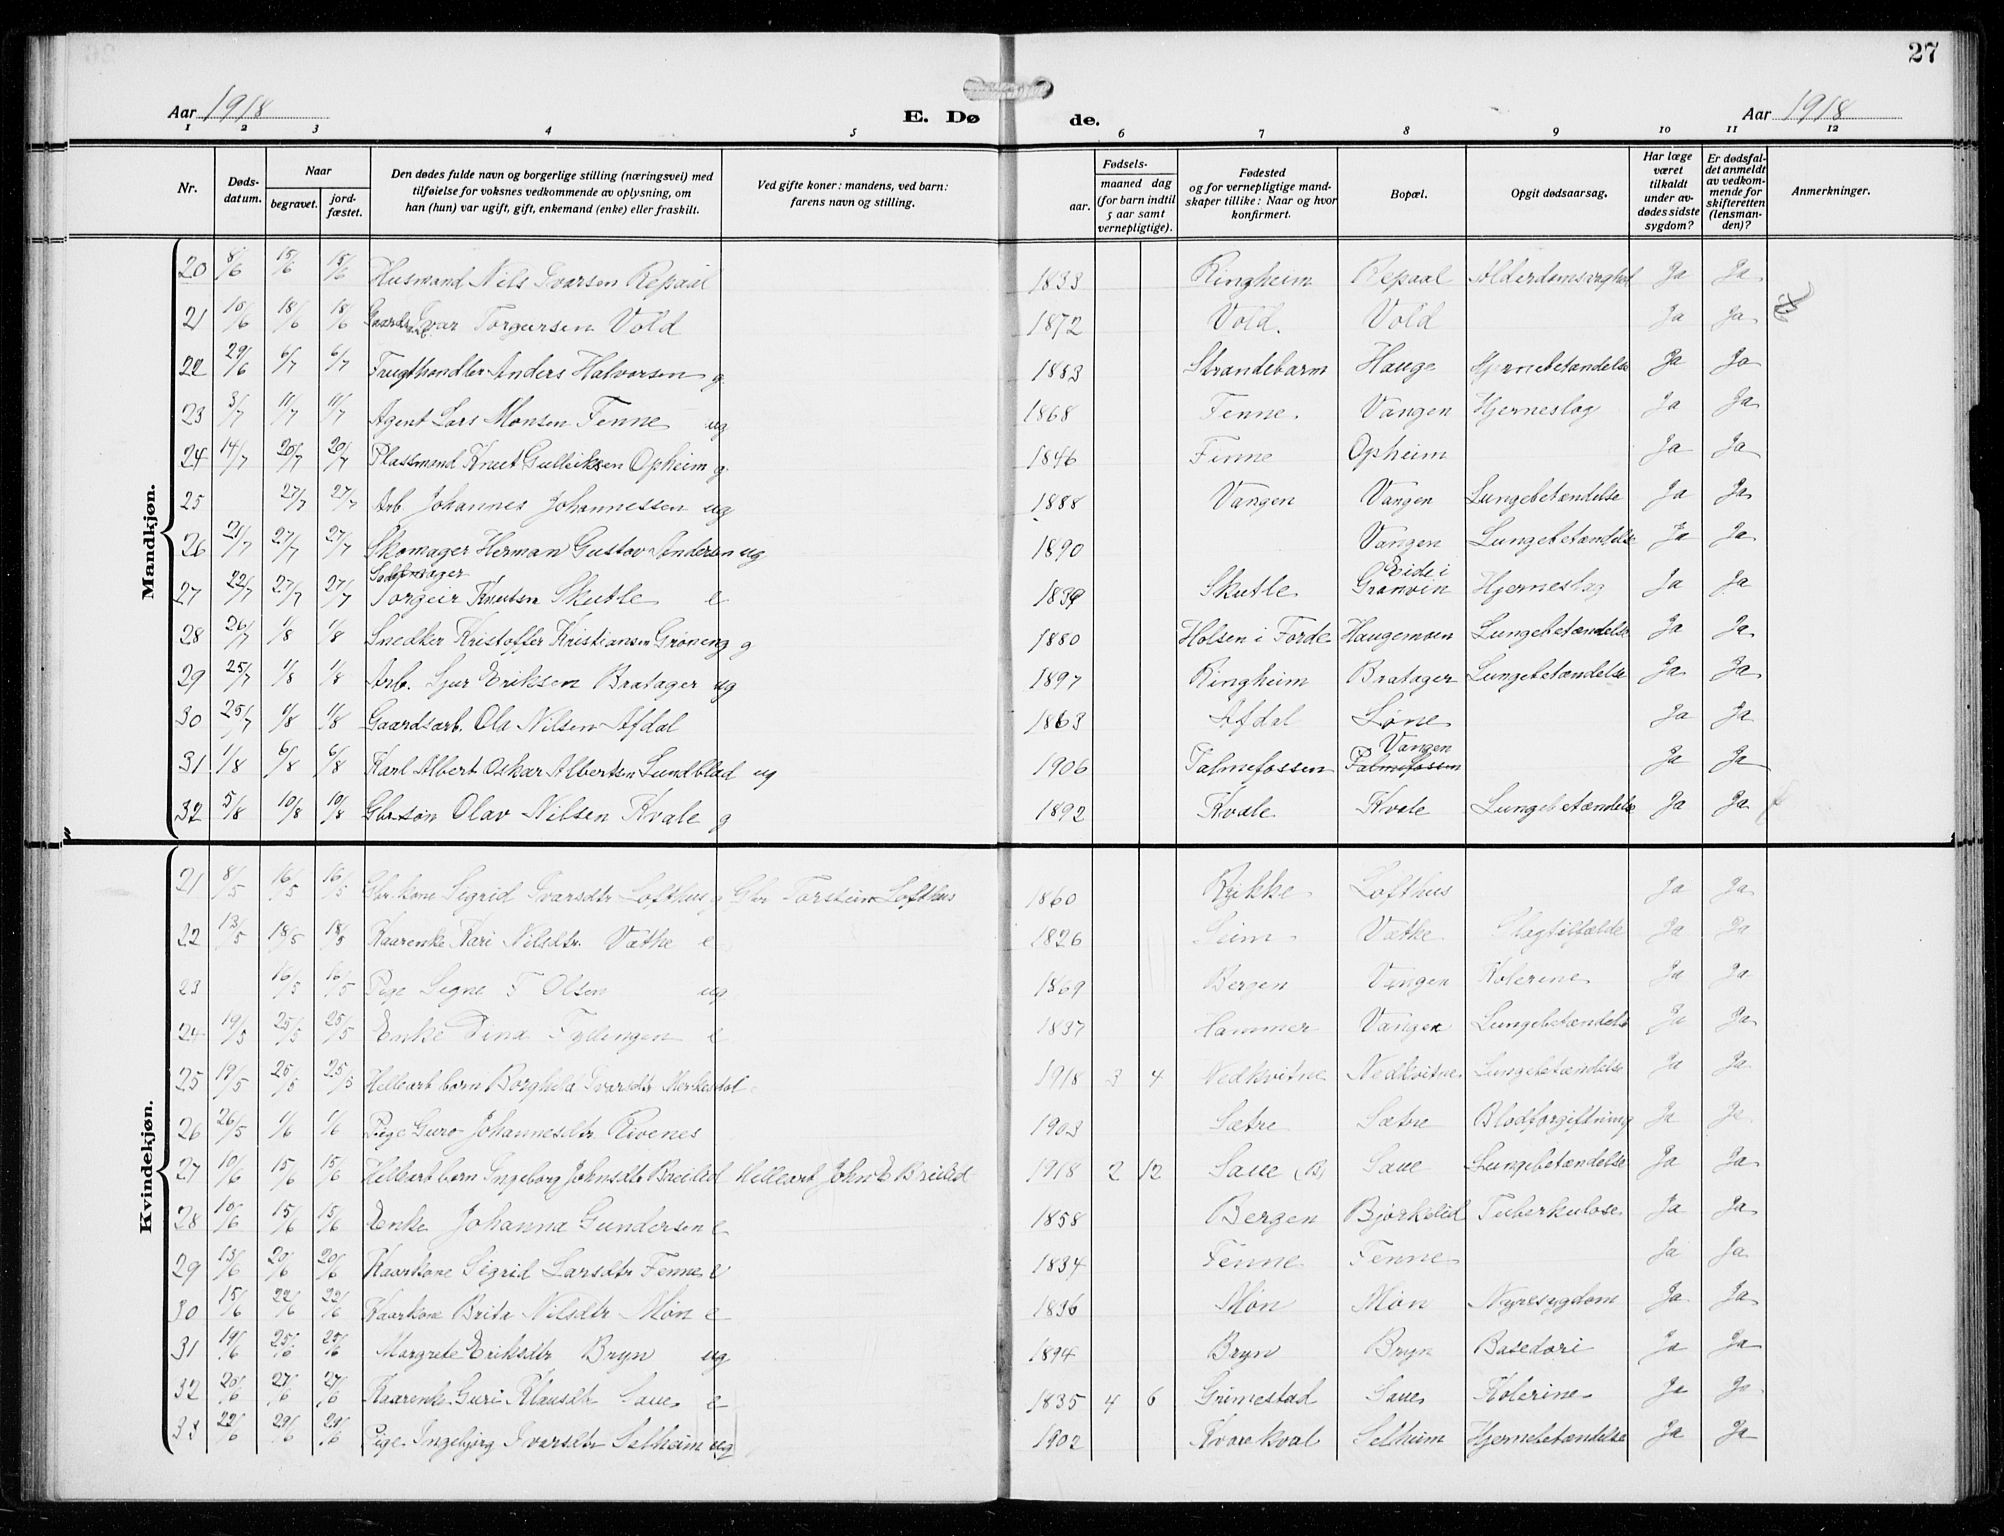 27
Aar 1918
E. Dø de.
Aar 1918
1 2 3 4 5 6 7 8 9 10 11 12
Nr.
Døds-
datum.
Naar
begravet.
jord-
fæstet.
Den dødes fulde navn og borgerlige stilling (næringsvei) med
tilføielse for voksnes vedkommende av oplysning, om
han (hun) var ugift, gift, enkemand (enke) eller fraskilt.
Ved gifte koner: mandens, ved barn:
farens navn og stilling.
Fødsels-
aar.
maaned dag
(for barn indtil
5 aar samt
vernepligtige).
Fødested
og for vernepligtige mand-
skaper tillike: Naar og hvor
konfirmert.
Bopæl.
Opgit dødsaarsag.
Har læge
været
tilkaldt
under av-
dødes sidste
sygdom?
Er dødsfal-
det anmeldt
av vedkom-
mende for
skifteretten
(lensman-
den)?
Anmerkninger.
Mandkjøn.
20 8/6 15/6 15/6 Husmand Nils Ivarsen Repaal 1833 Ringheim Repaal Alderdomsvaghed Ja Ja
21 10/6 18/6 18/6 Ivar Torgersen Vold 1872 Vold. Vold Ja Ja
22 29/6 6/7 6/7 Frugthandler Anders Halvorsen g 1883 Strandebarm Hauge Hjernebetændelse Ja Ja
23 3/7 11/7 11/7 Agent Lars Monsen Fenne ug 1868 Fenne. Vangen Hjerneslag Ja Ja
24 14/7 20/7 20/7 Plassmand Knut Gulleiksen Opheim g 1846 Finne Opheim Ja Ja
25 27/7 27/7 Arb. Johannes Johannessen ug 1888 Vangen Vangen Lungebetændelse Ja Ja
26 21/7 27/7 27/7 Skomager Herman Gustav Andersen ug 1890 Vangen Lungebetændelse Ja Ja
27 22/7 27/7 27/7 Torgeir Knutsen Skutle e 1839 Skutle Eide i Granvin Hjerneslag Ja Ja
28 26/7 1/8 1/8 Snedker Kristoffer Kristiansen Grøneng g 1880 Holsen i Førde Haugamoen Lungebetændelse Ja Ja
29 25/7 1/8 1/8 Arb. Sjur Eriksen Bratager ug 1897 Ringheim Bratager Lungebetændelse Ja Ja
30 25/7 1/8 1/8 Gaardsarb. Ola Nilsen Afdal 1863 Afdal Løne Ja Ja
31 1/8 6/8 6/8 Karl Albert Oskar Albertsen Lundblad ug 1906 Palmefossen Vangen Palmefossen Ja Ja
32 5/8 10/8 10/8 Gbr søn Olav Nilsen Kvale g 1892 Kvale Kvale Lungebetændelse Ja Ja
Kvindekjøn.
21 8/5 16/5 16/5 Gbr kone Sigrid Ivarsdtr Lofthus g Gbr Torstein Lofthus 1860 Rykke Lofthus Ja Ja
22 13/5 18/5 18/5 Kaarenke Kari Nilsdtr. Væthe e 1826 Seim Væthe Slagtilfælde Ja Ja
23 16/5 16/5 Pige Signe F Olsen ug 1869 Bergen Vangen Kolerine Ja Ja
24 19/5 25/5 25/5 Enke Tina Fyllingen e 1837 Hammer Vangen Lungebetændelse Ja Ja
25 19/5 25/5 25/5 Helleart barn Borghild Ivarsdtr Merkesdal 1918 3 4 Nedkvitne Nedkvitne Lungebetændelse Ja Ja
26 26/5 1/6 1/6 Pige Guro Johannesdtr Rivenes 1903 Sætre Sætre Blodforgiftning Ja Ja
27 10/6 15/6 15/6 Helleart barn Ingeborg Johnsdtr Breilid Helleart John E Breilid 1918 2 12 Saue (B) Saue Lungebetændelse Ja Ja
28 10/6 15/6 15/6 Enke Johanna Gundersen e 1858 Bergen Bjørkelid Tuberkulose Ja Ja
29 13/6 20/6 20/6 Kaarkone Sigrid Larsdtr Fenne e 1834 Fenne Fenne Ja Ja
30 15/6 22/6 22/6 Kaarkone Brita Nilsdtr Møn e 1836 Møn Møn Nyresygdom Ja Ja
31 19/6 25/6 25/6 Margrete Eriksdtr Bryn ug 1894 Bryn Bryn Basedovi Ja Ja
32 20/6 27/6 27/6 Kaarenke Guri Klausdtr Saue e 1835 4 6 Grimestad Saue Kolerine Ja Ja
33 22/6 29/6 29/6 Pige Ingebjørg Ivarsdtr Selheim ug 1902 Kvarekval Selheim Hjernebetændelse Ja Ja